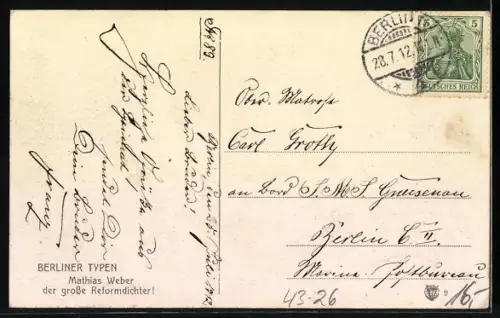 No 89.
Berlin, den 28. Juli 1912
Lieber Bruder!
Herzliche Grüße aus
der Heimat
sendet Dir
Dein Bruder
Franz
BERLINER TYPEN
Mathias Weber
der große Reformdichter!
BERLIN
28.7.12.
5
DEUTSCHES REICH
Ober. Matrose
Carl Groth
an Bord S.M.S. Gneisenau
Berlin C II
Marine-Postbureau
43-26
16,-